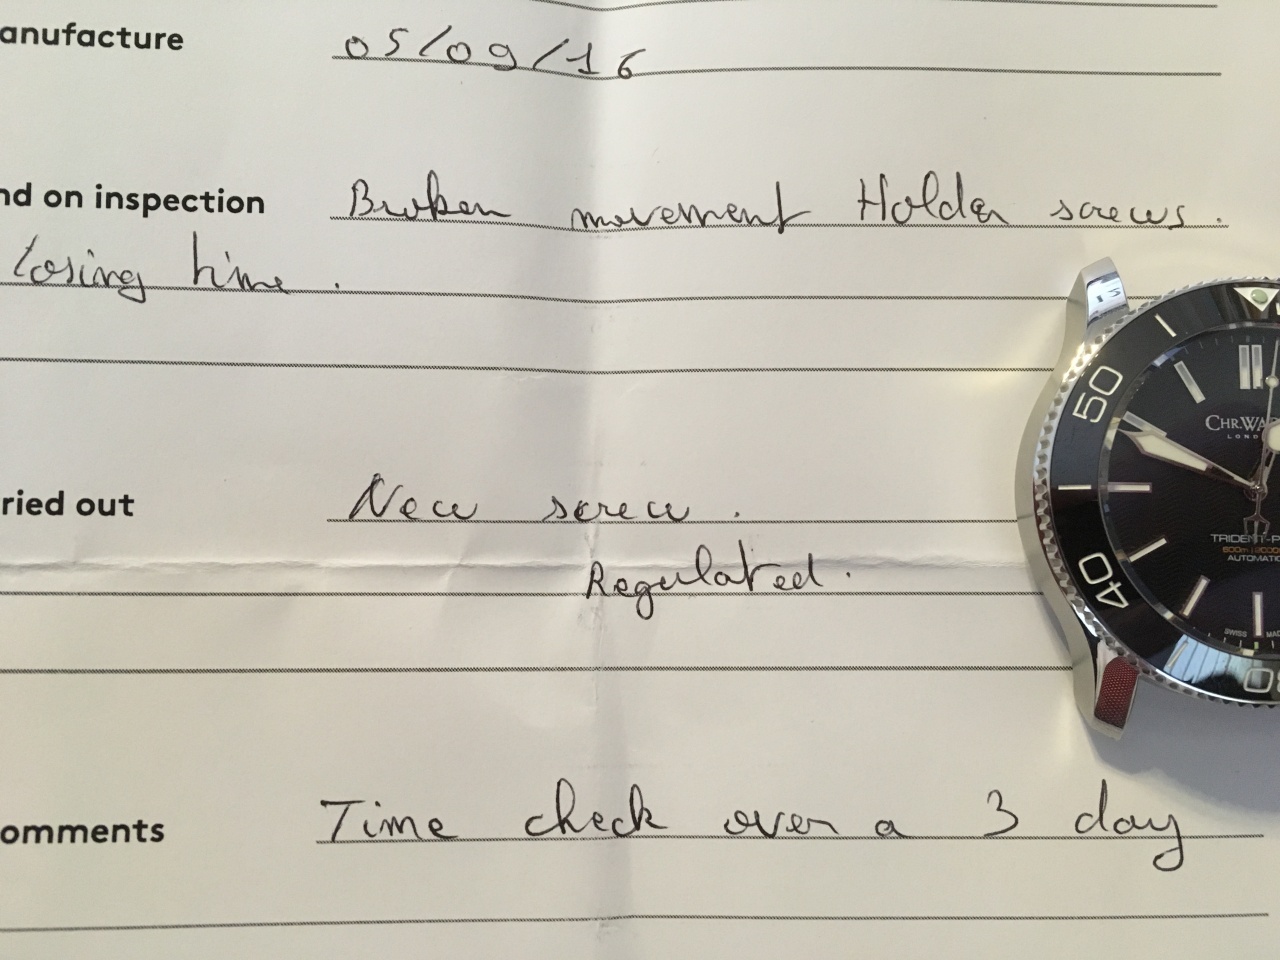 anufacture 05/09/16
nd on inspection Broken movement Holder screws.
losing time.
ried out New screw.
Regulated.
omments Time check over a 3 day
50
40
30
CHR.WA
LOND
TRIDENT-P
600m | 2000
AUTOMATIC
SWISS MAD